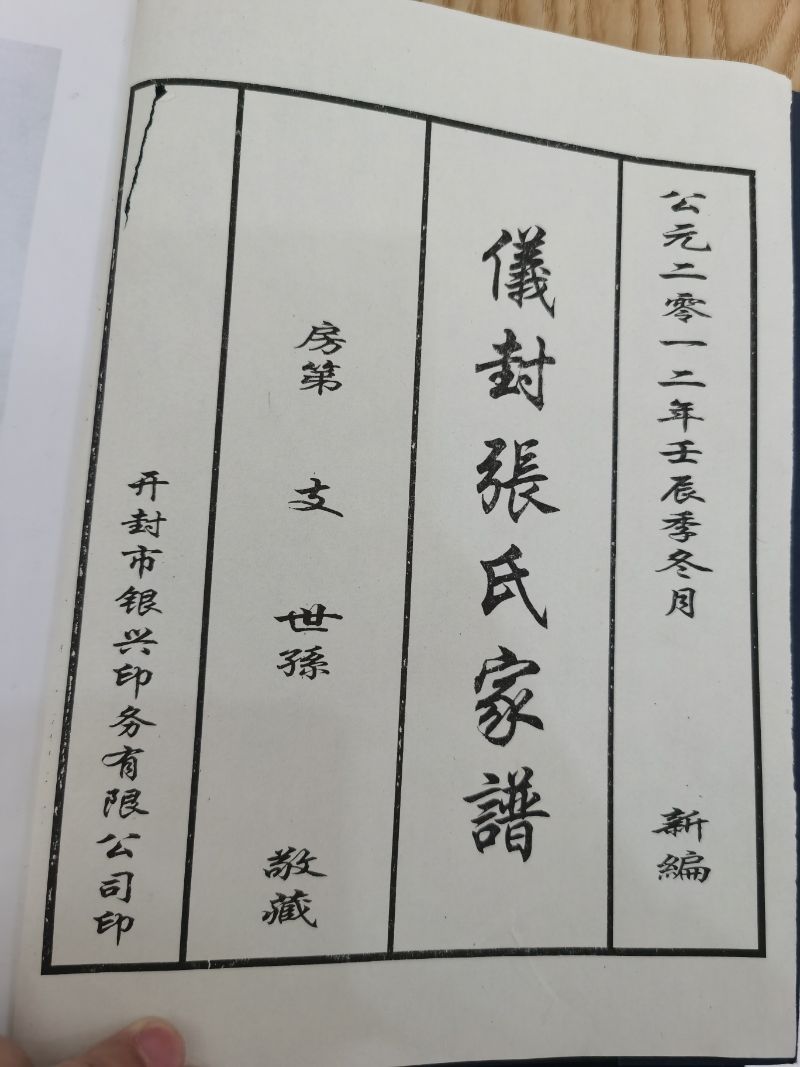 公元二零一二年壬辰季冬月 新編
儀封張氏家譜
房第 支 世孫 敬藏
开封市银兴印务有限公司印